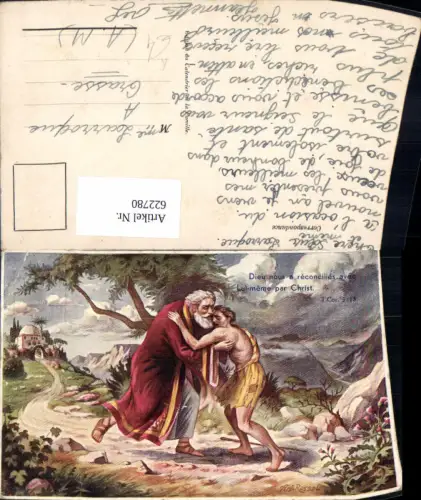 Correspondance
Chère Mme Larroque
A l'occasion du
nouvel an je viens
vous présenter mes
vœux les meilleurs
de joie de bonheur dans
votre isolement et
surtout de santé
que le Seigneur vous
bénisse et vous accorde
ses bénédictions les
plus riches en atten
de vous lire recevez
mes meilleurs
baisers
Mme Larroque
A
Grasse
(A. M)
Artikel Nr.
622780
Dieu nous a réconciliés avec
Lui-même par Christ.
2 Cor. 5:18